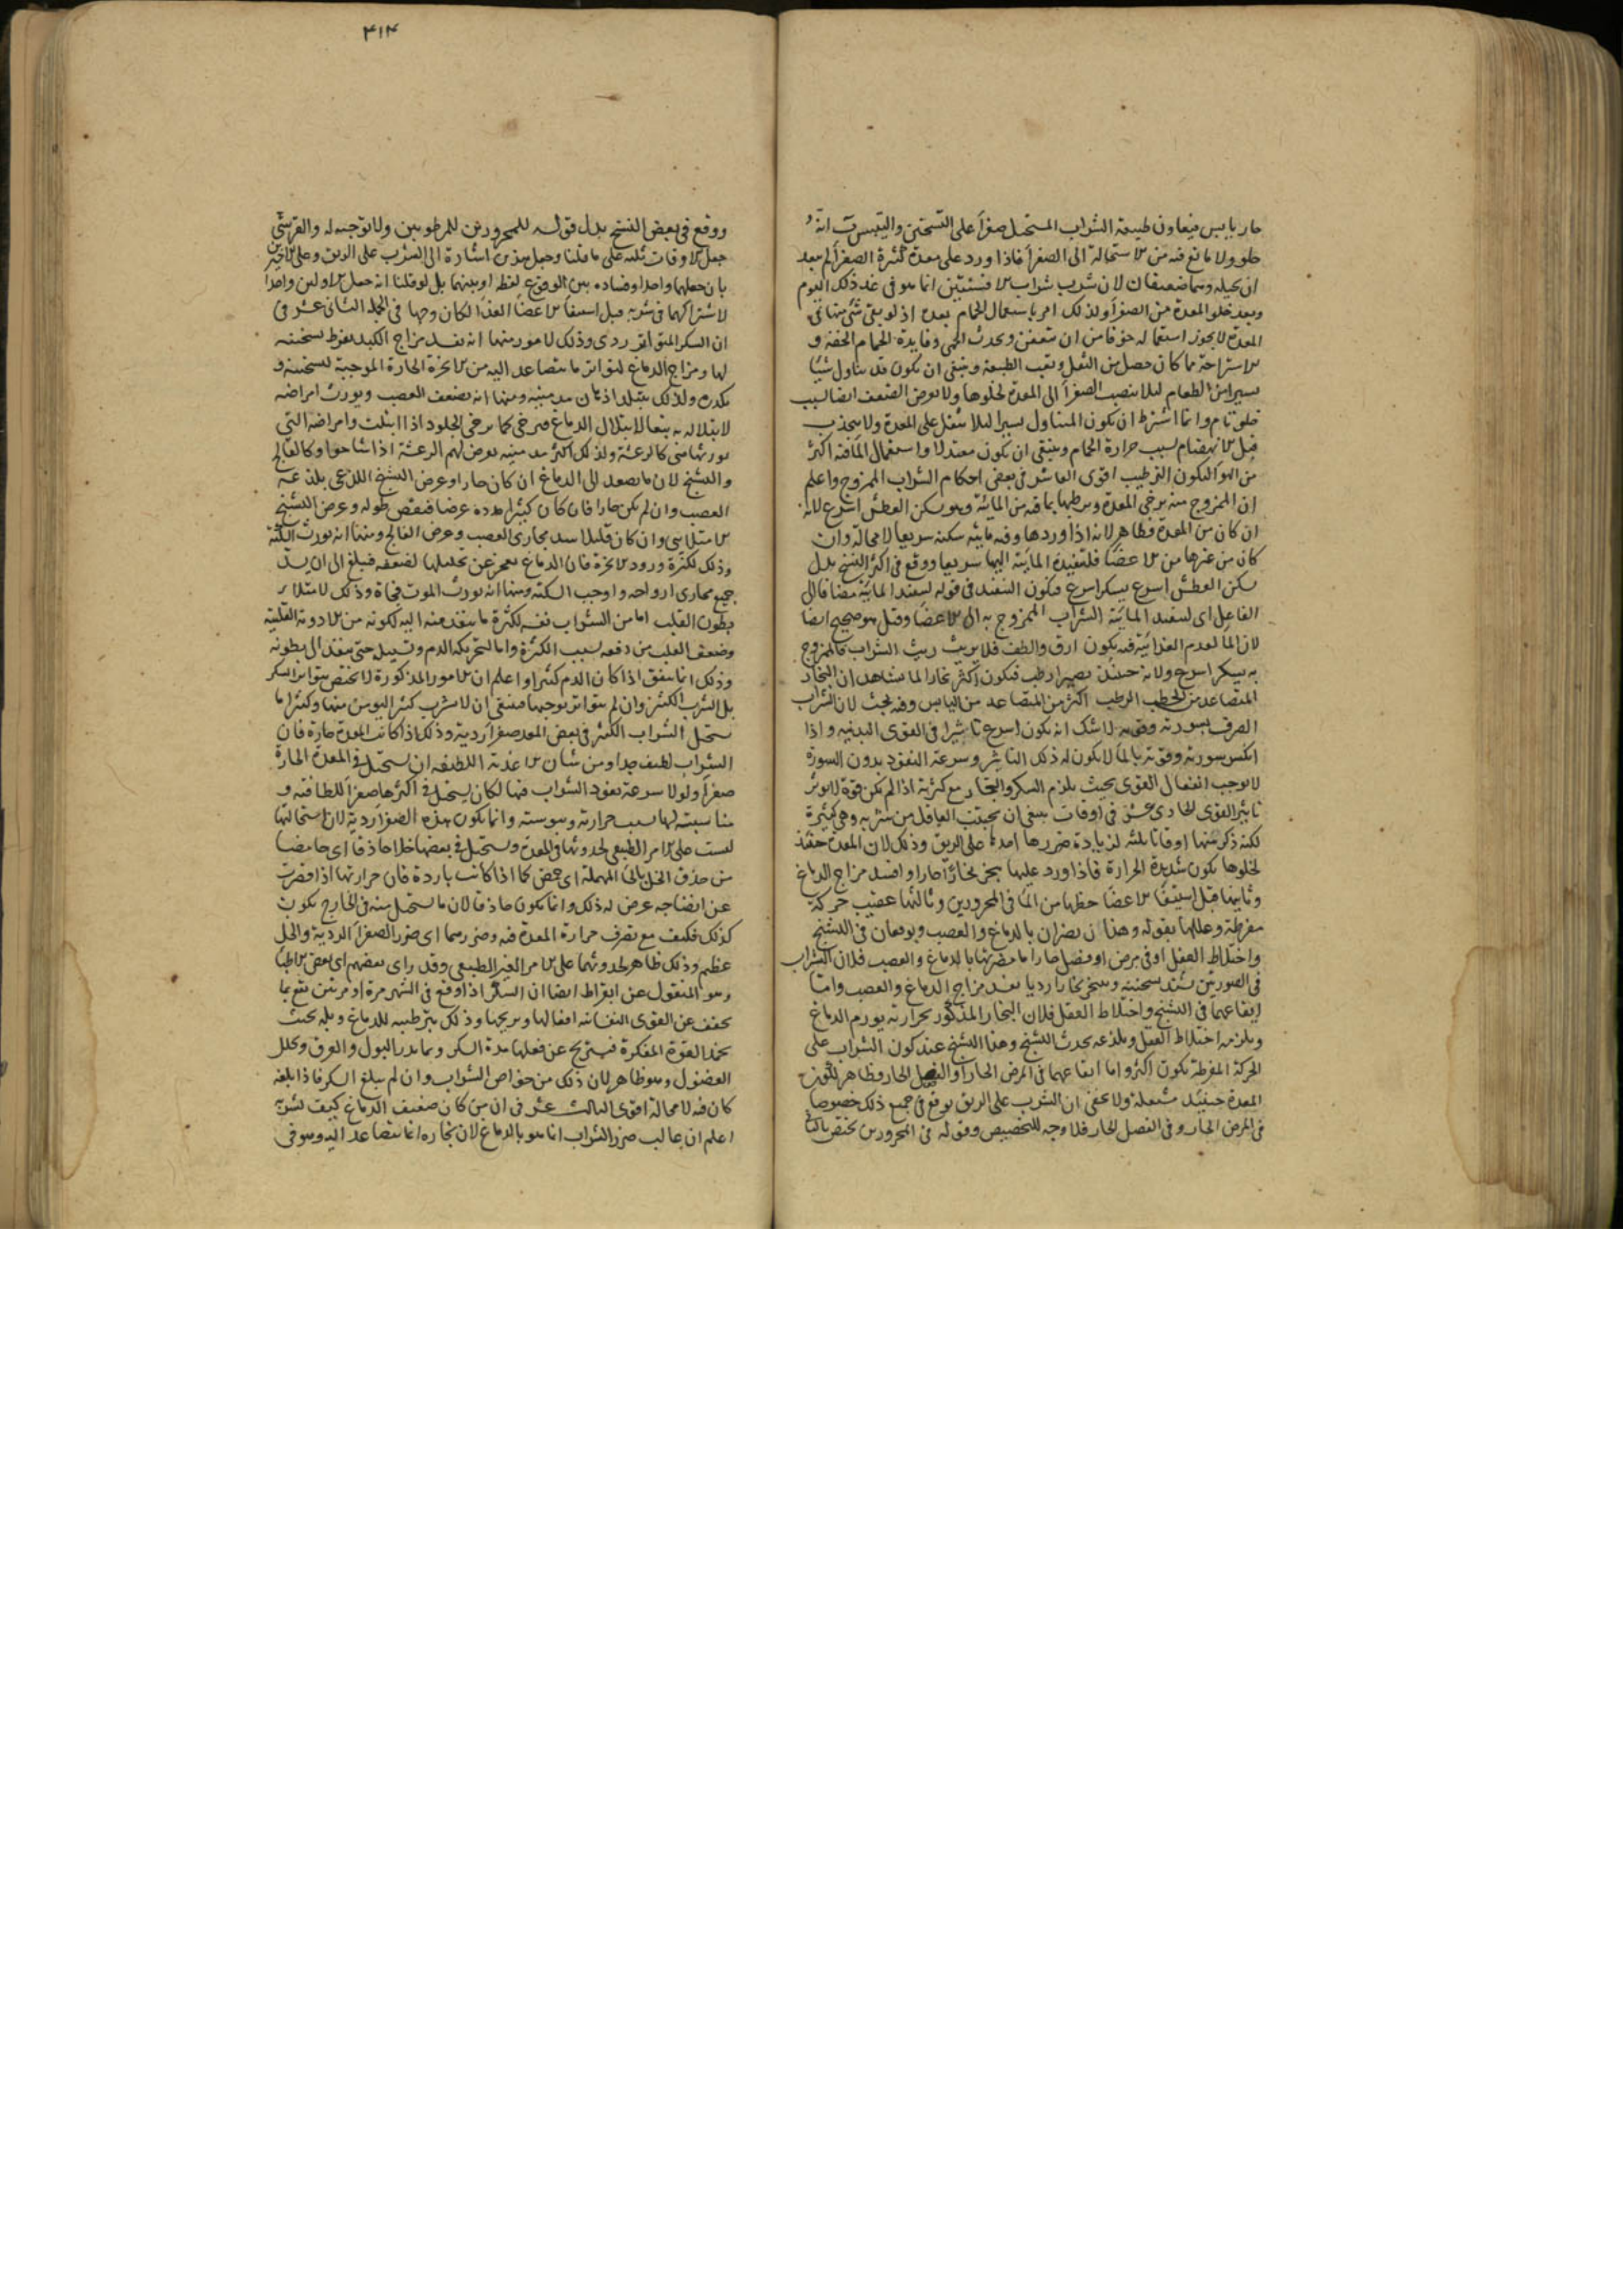 حار يابس فيعاون طبيعة الشراب المستحيل صفرا على التسخين والتيبيس ب انه
حلو ولا مانع فيه من الاستحالة الى الصفرا فاذا ورد على معدة كثيرة الصفرا لم يبعد
ان يحيله وهما ضعيفان لان شرب شراب الافسنتين انما هو في غد ذلك اليوم
وبعد خلو المعدة من الصفرا ولذلك امر باستعمال الحمام بعده اذ لو بقي شي منها في
المعدة لا يجوز استعماله خوفا من ان يتعفن ويحدث الحمى وفايدة الحمام الخفة و
الاستراحة مما كان حصل من الثفل وتعب الطبيعة وينبغي ان يكون قد يتناول شيئا
يسيرا من الطعام ليلا ينصب الصفرا الى المعدة لخلوها ولا يعرض الضعف ايضا لسبب
خلو تام وانما اشترط ان يكون المتناول يسيرا ليلا يثقل على المعدة ولا ينجذب
قبل الانهضام لسبب حرارة الحمام وينبغي ان يكون معتدلا واستعمال الما فيه اكثر
من الهوا ليكون الترطيب اقوى العاشر في بعض احكام الشراب الممزوج واعلم
ان الممزوج منه يرخي المعدة ويرطبها بما فيه من المائية وهو يسكن العطش اسرع لانه
ان كان من المعدة فظاهر لانه اذا وردها وفيه مايية سكنه سريعا لا محالة وان
كان من غيرها من الاعضا فلتنفيذه المائية اليها سريعا ووقع في اكثر النسخ بدل
يسكن العطش اسرع يسكر اسرع فيكون التنفيذ في قوله لتنفيذ المائية مضافا الى
الفاعل اي لتنفيذ المائية الشراب الممزوج به الى الاعضا وقيل هو صحيح ايضا
لان الما لعدم الغذائية فيه يكون ارق والطف فلا يريث ريث الشراب فالممزوج
به يسكر اسرع ولانه حينئذ يصير ارطب فيكون اكثر بخارا لما يشاهد ان البخار
المتصاعد من الحطب الرطب اكثر من المتصاعد من اليابس وفيه بحث لان الشراب
الصرف بسورته وقوته لا شك انه يكون اسرع تاثيرا في القوى البدنية واذا
انكسر سورته وقوته بالما لا يكون له ذلك التاثير وسرعة النفوذ بدون السورة
لا يوجب انفعال القوى بحيث يلزم السكر والبخار مع كثرته اذا لم يكن قوة لا يوثر
تاثير القوى الحادي عشر في اوقات ينبغي ان يجتنب العاقل من شربه وهي كثيرة
لكنه ذكر منها اوقاتا ثلثه لزيادة ضررها احدها على الريق وذلك لان المعدة حينئذ
لخلوها يكون شديدة الحرارة فاذا ورد عليها يبخر بخارا حارا وافسد مزاج الدماغ
وثانيها قبل استيفا الاعضا حظها من الما في المحرورين وثالثها عقيب حركة
مفرطة وعللها بقوله وهذان يضران بالدماغ والعصب ويوقعان في التشنج
واختلاط العقل او في مرض او فصل حار اما مضرتها بالدماغ والعصب فلان الشراب
في الصورتين يشتد سخنيته ويبخر بخارا رديا يفسد مزاج الدماغ والعصب واما
ايقاعهما في التشنج واختلاط العقل فلان البخار المذكور بحرارته يورم الدماغ
ويلزمه اختلاط العقل وبلذعه يحدث التشنج وهذا التشنج عند كون الشراب على
الحركة المفرطة يكون اكثر واما ايقاعهما في المرض الحار او الفصل الحار فظاهر لكون
المعدة حينئذ مشتعلة ولا يخفى ان الشرب على الريق يوقع في جميع ذلك خصوصا
في المرض الحار وفي الفصل الحار فلا وجه للتخصيص وقوله في المحرورين يختص بالثاني
٤١٤
ووقع في بعض النسخ بدل قوله للمحرورين للمرطوبين ولا توجيه له والقرشي
جعل الاوقات ثلثه على ما قلنا وجعل هذين اشارة الى الشرب على الريق وعلى
بان جعلهما واحدا وفساده بين الوقوع لفظ اوبينهما بل لو قلنا انه جعل الاولين واحدا
لاشتراكهما في شربه قبل استيفا الاعضا الغذا لكان وجها في الجملة الثاني عشر في
ان السكر المتواتر ردي وذلك لامور منها انه يفسد مزاج الكبد لفرط تسخينه
لها ومزاج الدماغ لتواتر ما يتصاعد اليه من الابخرة الحارة الموجبة لتسخينه و
يكدره ولذلك يتبلد اذهان مدمنيه ومنها انه يضعف العصب ويورث امراضه
لابتلاله به تبعا لابتلال الدماغ فيرخي كما يرخي الجلود اذا ابتلت وامراضه التي
يورثها هي كالرعشة ولذلك اكثر مدمنيه يعرض لهم الرعشة اذا شاخوا وكالفالج
والتشنج لان ما يصعد الى الدماغ ان كان حارا وعرض التشنج اللذعي بلذعه
العصب وان لم يكن حارا فان كان كثيرا مدده عرضا فينقص طوله وعرض التشنج
الامتلايي وان كان قليلا سد مجاري العصب وعرض الفالج ومنها انه يورث السكتة
وذلك لكثرة ورود الابخرة فان الدماغ يعجز عن تحليلها لضعفه فيبلغ الى ان يسد
جميع مجاري ارواحه واوجب السكتة ومنها انه يورث الموت فجاة وذلك لامتلاء
بطون القلب اما من الشراب نفسه لكثرة ما ينفذ منه اليه لكونه من الادوية القلبية
وضعف القلب من دفعه لسبب الكثرة واما لتحريكه الدم وتسييله حتى ينفذ الى بطونه
وذلك انما يتفق اذا كان الدم كثيرا واعلم ان الامور المذكورة لا يختص بتواتر السكر
بل الشرب الكثير وان لم يتواتر يوجبها فينبغي ان لا يشرب كثيرا ليومن منها وكثيرا ما
يستحيل الشراب الكثير في بعض المعد صفرا ردية وذلك اذا كانت المعدة حارة فان
الشراب لطيف جدا ومن شان الاغذية اللطيفه ان يستحيل في المعدة الحارة
صفرا ولولا سرعة نفوذ الشراب فيها لكان يستحيل في اكثرها صفرا للطافته و
مناسبته لها بسبب حرارته ويبوسته وانما يكون هذه الصفرا ردية لان استحالتها
ليست على الامر الطبيعي لحدوثها في المعدة ويستحيل في بعضها خلا حاذقا اي حامضا
من حذق الخل بالحا المهملة اي حمض كما اذا كانت باردة فان حرارتها اذا قصرت
عن انضاجه عرض له ذلك وانما يكون حاذقا لان ما يستحيل منه في الخارج يكون
كذلك فكيف مع تصرف حرارة المعدة فيه وضررهما اي ضرر الصفرا الردية والخل
عظيم وذلك ظاهر لحدوثهما على الامر الغير الطبيعي وقد راي بعضهم اي بعض الاطبا
وهو المنقول عن ابقراط ايضا ان السكر اذا وقع في الشهر مرة او مرتين نفع بما
يخفف عن القوى النفسانية افعالها ويريحها وذلك بترطيبه للدماغ وبله بحيث
يخدر القوة المفكرة فيستريح عن فعلها مدة السكر وبما يدر البول والعرق ويحلل
الفضول وهو ظاهر لان ذلك من خواص الشراب وان لم يبلغ السكر فاذا بلغه
كان فيه لا محالة اقوى الثالث عشر في ان من كان ضعيف الدماغ كيف يشربه
اعلم ان غالب ضرر الشراب انما هو بالدماغ لان بخاره انما يتصاعد اليه وهو في